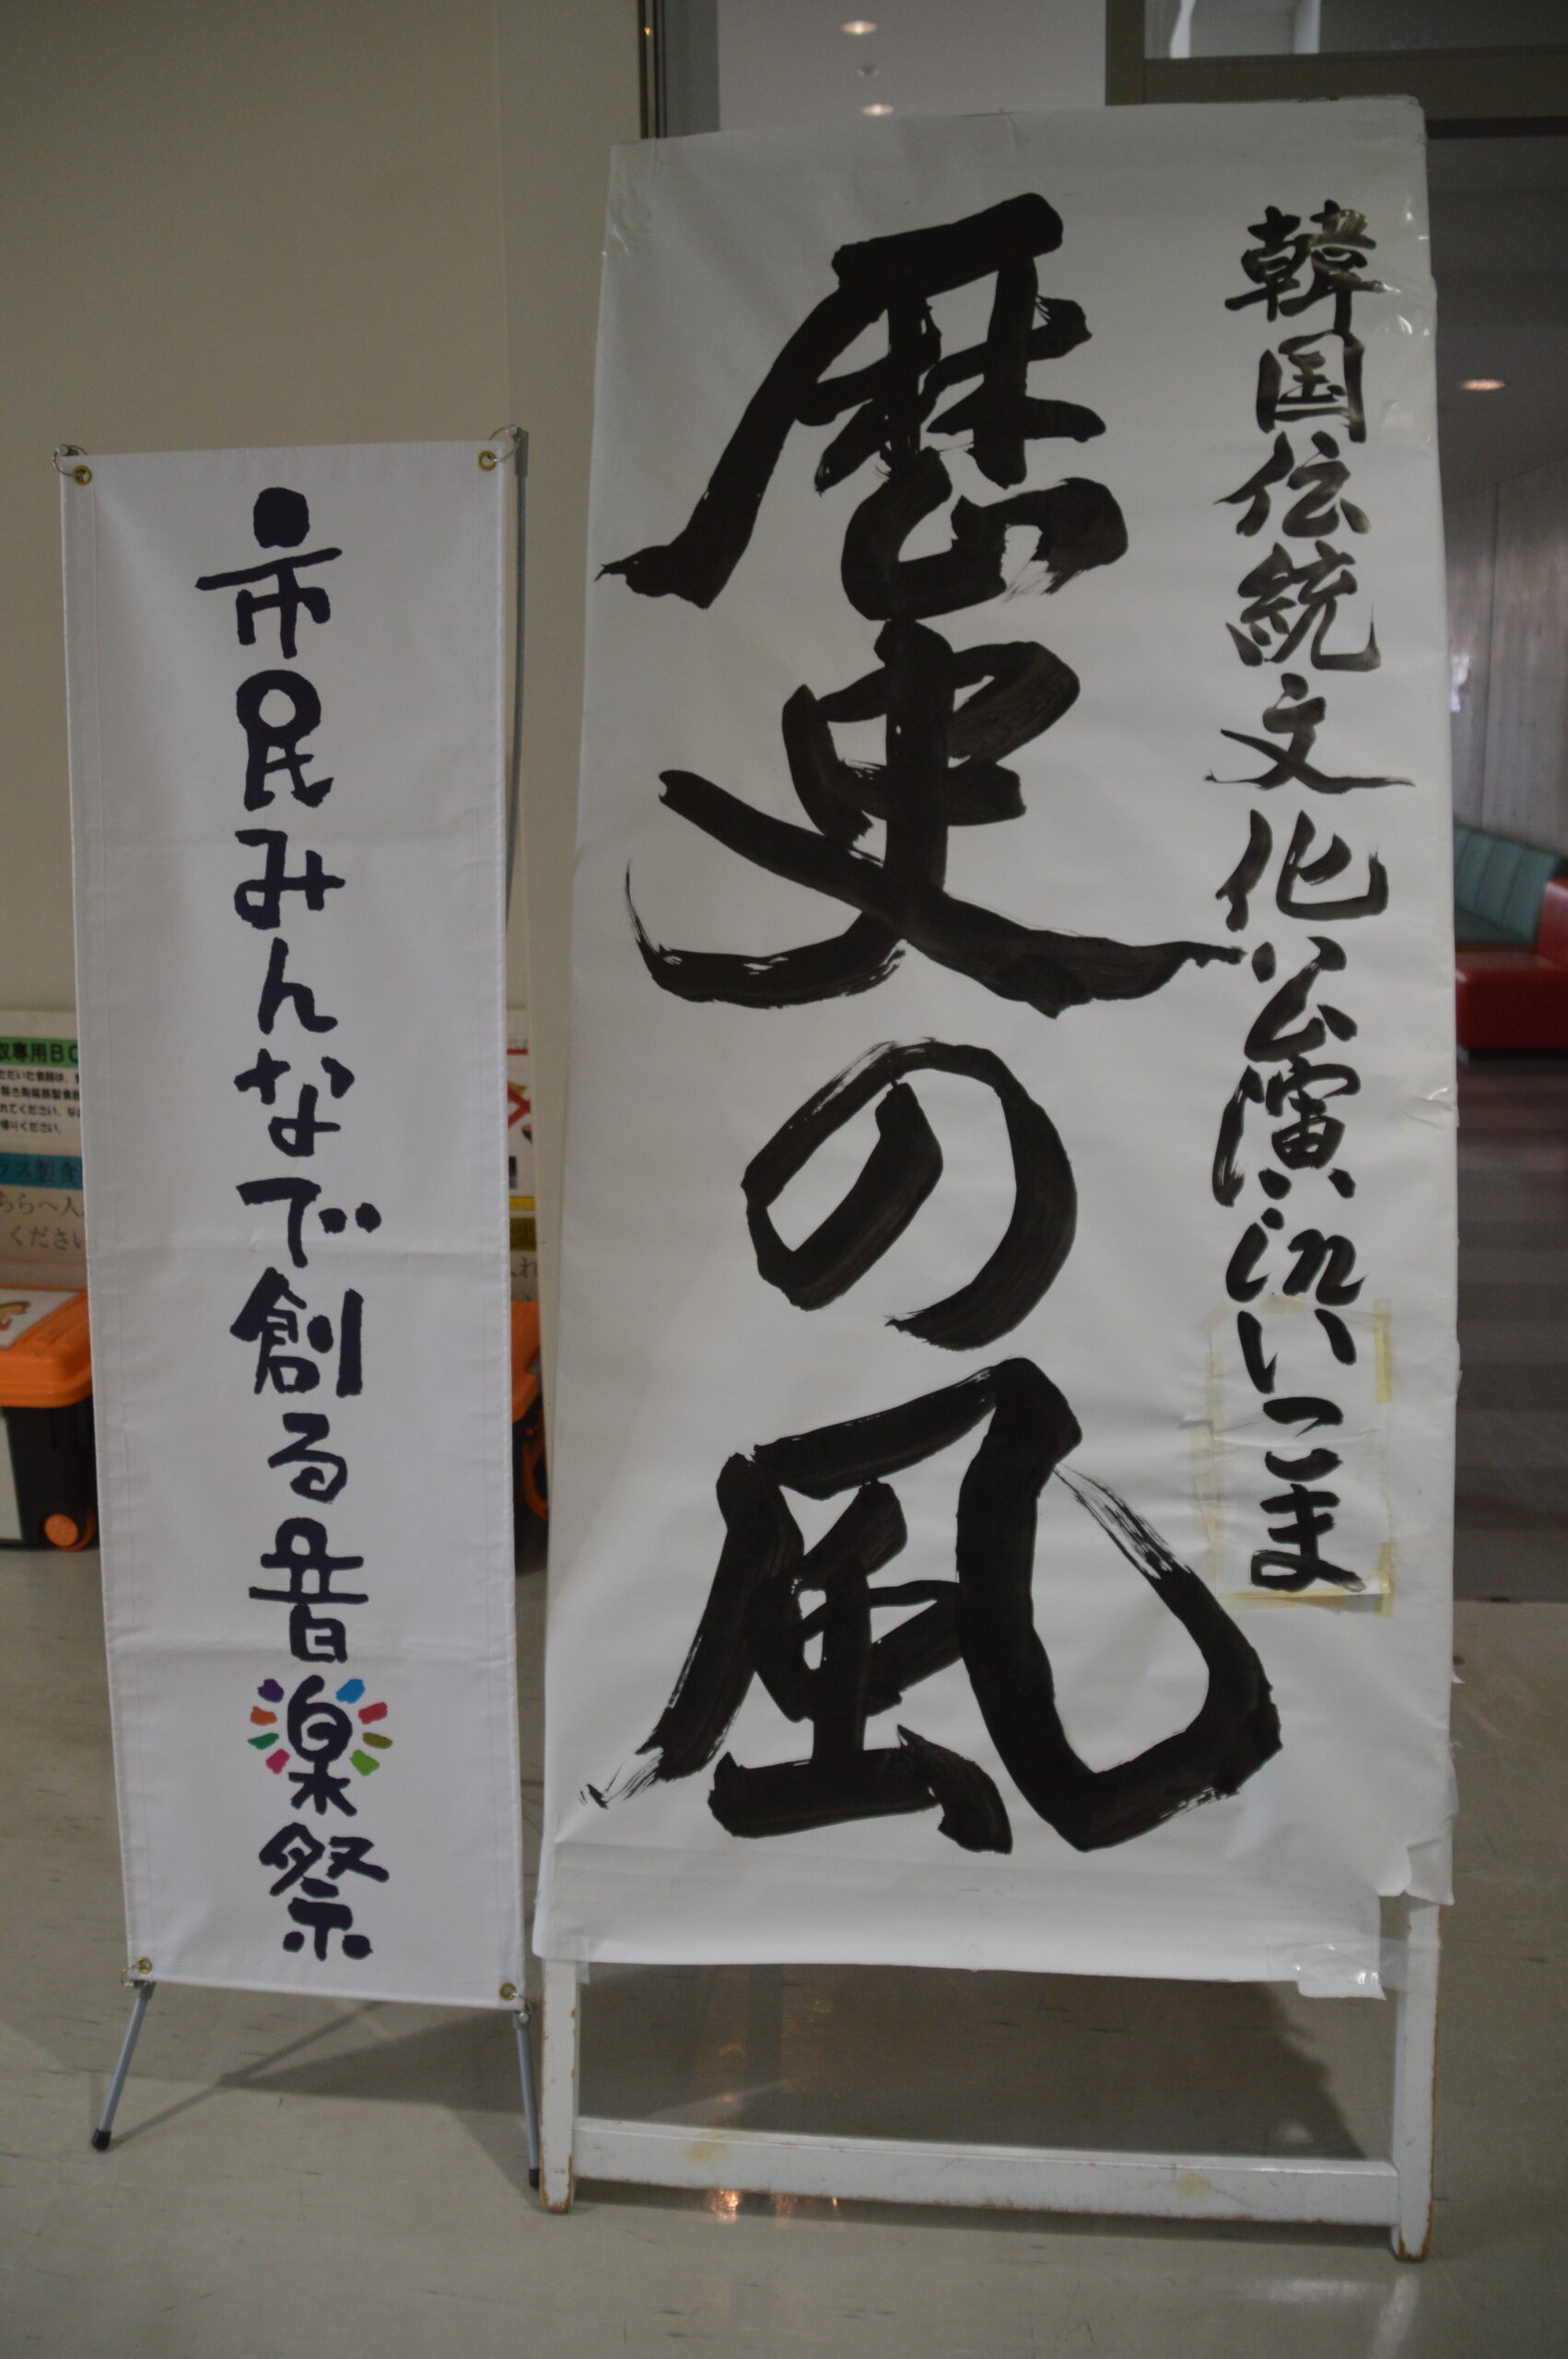 韓国伝統文化公演inいこま
歴史の風
市民みんなで創る音楽祭
収専用BO